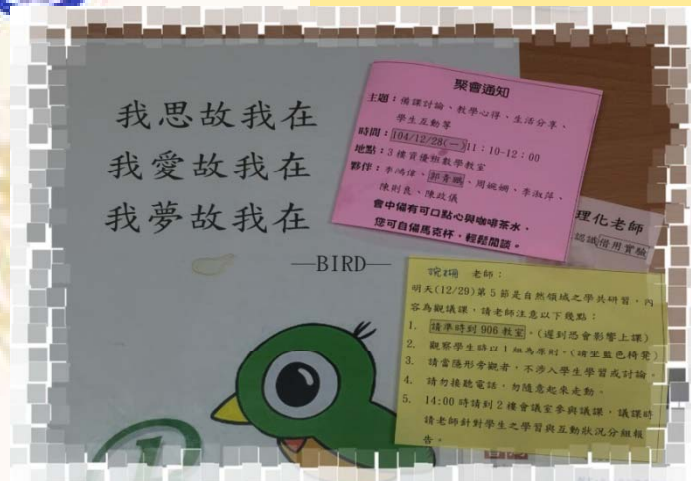 我思故我在
我愛故我在
我夢故我在
—BIRD—
聚會通知
主題：備課討論、教學心得、生活分享、
學生互動等
時間：104/12/28(一)11：10-12：00
地點：3樓資優班數學教室
夥伴：李鴻偉、郭青鵬、周婉嫻、李淑萍、
陳則良、陳政儀
會中備有可口點心與咖啡茶水，
您可自備馬克杯，輕鬆閒談。
理化老師
認識借用實驗
婉嫻 老師：
明天(12/29)第5節是自然領域之學共研習，內
容為觀議課，請老師注意以下幾點：
1. 請準時到906教室。(遲到恐會影響上課)
2. 觀察學生時以1組為原則。(請坐藍色椅凳)
3. 請當隱形旁觀者，不涉入學生學習或討論。
4. 請勿接聽電話，勿隨意起來走動。
5. 14:00時請到2樓會議室參與議課，議課時
請老師針對學生之學習與互動狀況分組報
告。